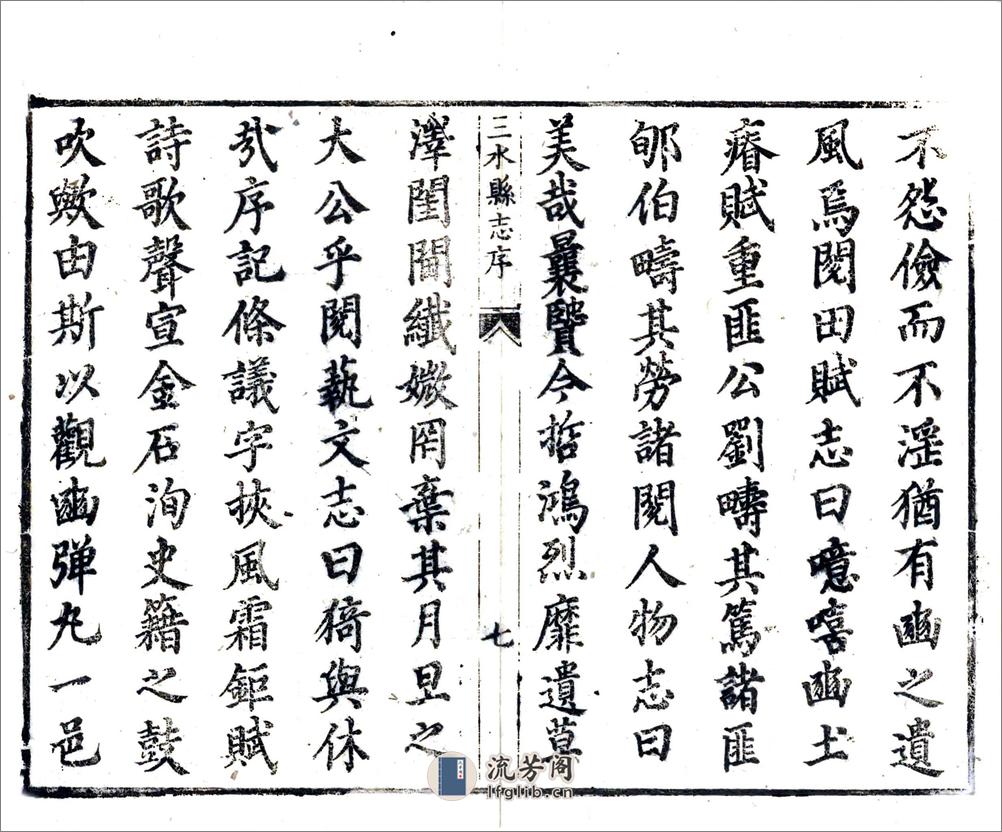 不怨儉而不淫猶有豳之遺
風焉閱田賦志曰噫嘻豳土
瘠賦重匪公劉疇其篤諸匪
郇伯疇其勞諸閱人物志曰
美哉曩賢今哲鴻烈靡遺草
三水縣志序
七
澤閨閫纖媺罔棄其月旦之
大公乎閱藝文志曰猗與休
哉序記條議字挾風霜鉅賦
詩歌聲宣金石洵史籍之鼓
吹歟由斯以觀豳彈丸一邑
流芳阁
lfglib.cn